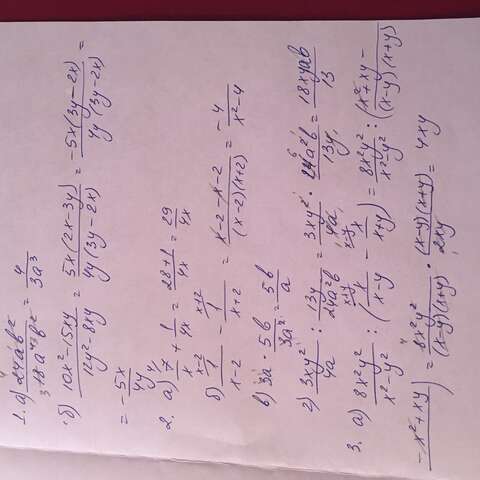 1. а) 24ab²/318a⁴b² = 4/3a³
б) 10x²-15xy/12y²-8xy = 5x(2x-3y)/4y(3y-2x) = -5x(3y-2x)/4y(3y-2x) =
= -5x/4y
2. а) 7/x + 1/4x = 28+1/4x = 29/4x
б) 1/x-2 - 1/x+2 = x-2-x-2/(x-2)(x+2) = -4/x²-4
в) 3a · 5b/3a² = 5b/a
г) 3xy²/4a : 13y/24a²b = 3xy²/4a · 24a²b/13y = 18xyab/13
3. а) 8x²y²/x²-y² : (x/x-y - x/x+y) = 8x²y²/x²-y² : (x²+xy-/(x-y)(x+y)
-x²+xy) = 8x²y²/(x-y)(x+y) · (x-y)(x+y)/2xy = 4xy